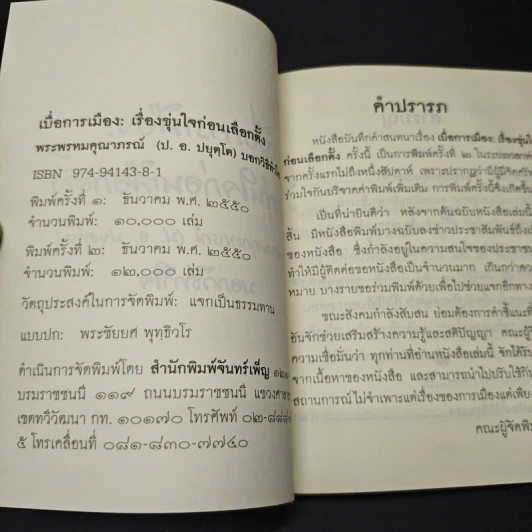 เบื่อการเมือง: เรื่องขุ่นใจก่อนเลือกตั้ง
พระพรหมคุณาภรณ์ (ป. อ. ปยุตฺโต) บอกวิธีทำใจ
ISBN 974-94143-8-1
พิมพ์ครั้งที่ ๑: ธันวาคม พ.ศ. ๒๕๕๐
จำนวนพิมพ์: ๑๐,๐๐๐ เล่ม
พิมพ์ครั้งที่ ๒: ธันวาคม พ.ศ. ๒๕๕๐
จำนวนพิมพ์: ๑๒,๐๐๐ เล่ม
วัตถุประสงค์ในการจัดพิมพ์: แจกเป็นธรรมทาน
แบบปก: พระชัยยศ พุทฺธิวโร
ดำเนินการจัดพิมพ์โดย สำนักพิมพ์จันทร์เพ็ญ
บรมราชชนนี ๑๑๙ ถนนบรมราชชนนี แขวง
เขตทวีวัฒนา กท. ๑๐๑๗๐ โทรศัพท์
๕ โทรเคลื่อนที่ ๐๘๑-๘๓๐-๗๗๔๐
คำปรารภ
หนังสือบันทึกคำสนทนาเรื่อง เบื่อการเมือง: เรื่องขุ่นใจ
ก่อนเลือกตั้ง ครั้งนี้ เป็นการพิมพ์ครั้งที่ ๒ ในระยะเวลา
จากครั้งแรกไม่ถึงหนึ่งสัปดาห์ เพราะปรากฏว่ามีผู้มีจิตศรัทธา
ร่วมใจกันบริจาคค่าพิมพ์เพิ่มเติม การพิมพ์ครั้งนี้จึงเกิดขึ้น
เป็นที่น่ายินดีว่า หลังจากต้นฉบับหนังสือเล่มนี้
สิ้น มีหนังสือพิมพ์บางฉบับลงข่าวประชาสัมพันธ์
ของหนังสือ ซึ่งกำลังอยู่ในความสนใจของประชาชน
ทำให้มีผู้ติดต่อขอหนังสือเป็นจำนวนมาก เกินกว่า
หมาย บางรายขอร่วมพิมพ์ด้วยเพื่อไปช่วยแจกอีกทาง
ขณะสังคมกำลังสับสน ย่อมต้องการคำชี้แนะ
อันจักช่วยเสริมสร้างความรู้และสติปัญญา คณะผู้
ความเชื่อมั่นว่า ทุกท่านที่อ่านหนังสือเล่มนี้ จักได้รับ
จากเนื้อหาของหนังสือ และสามารถนำไปปรับใช้กับ
สถานการณ์ไม่จำเพาะแต่เรื่องของการเมืองแต่เพียง
คณะผู้จัดพิมพ์